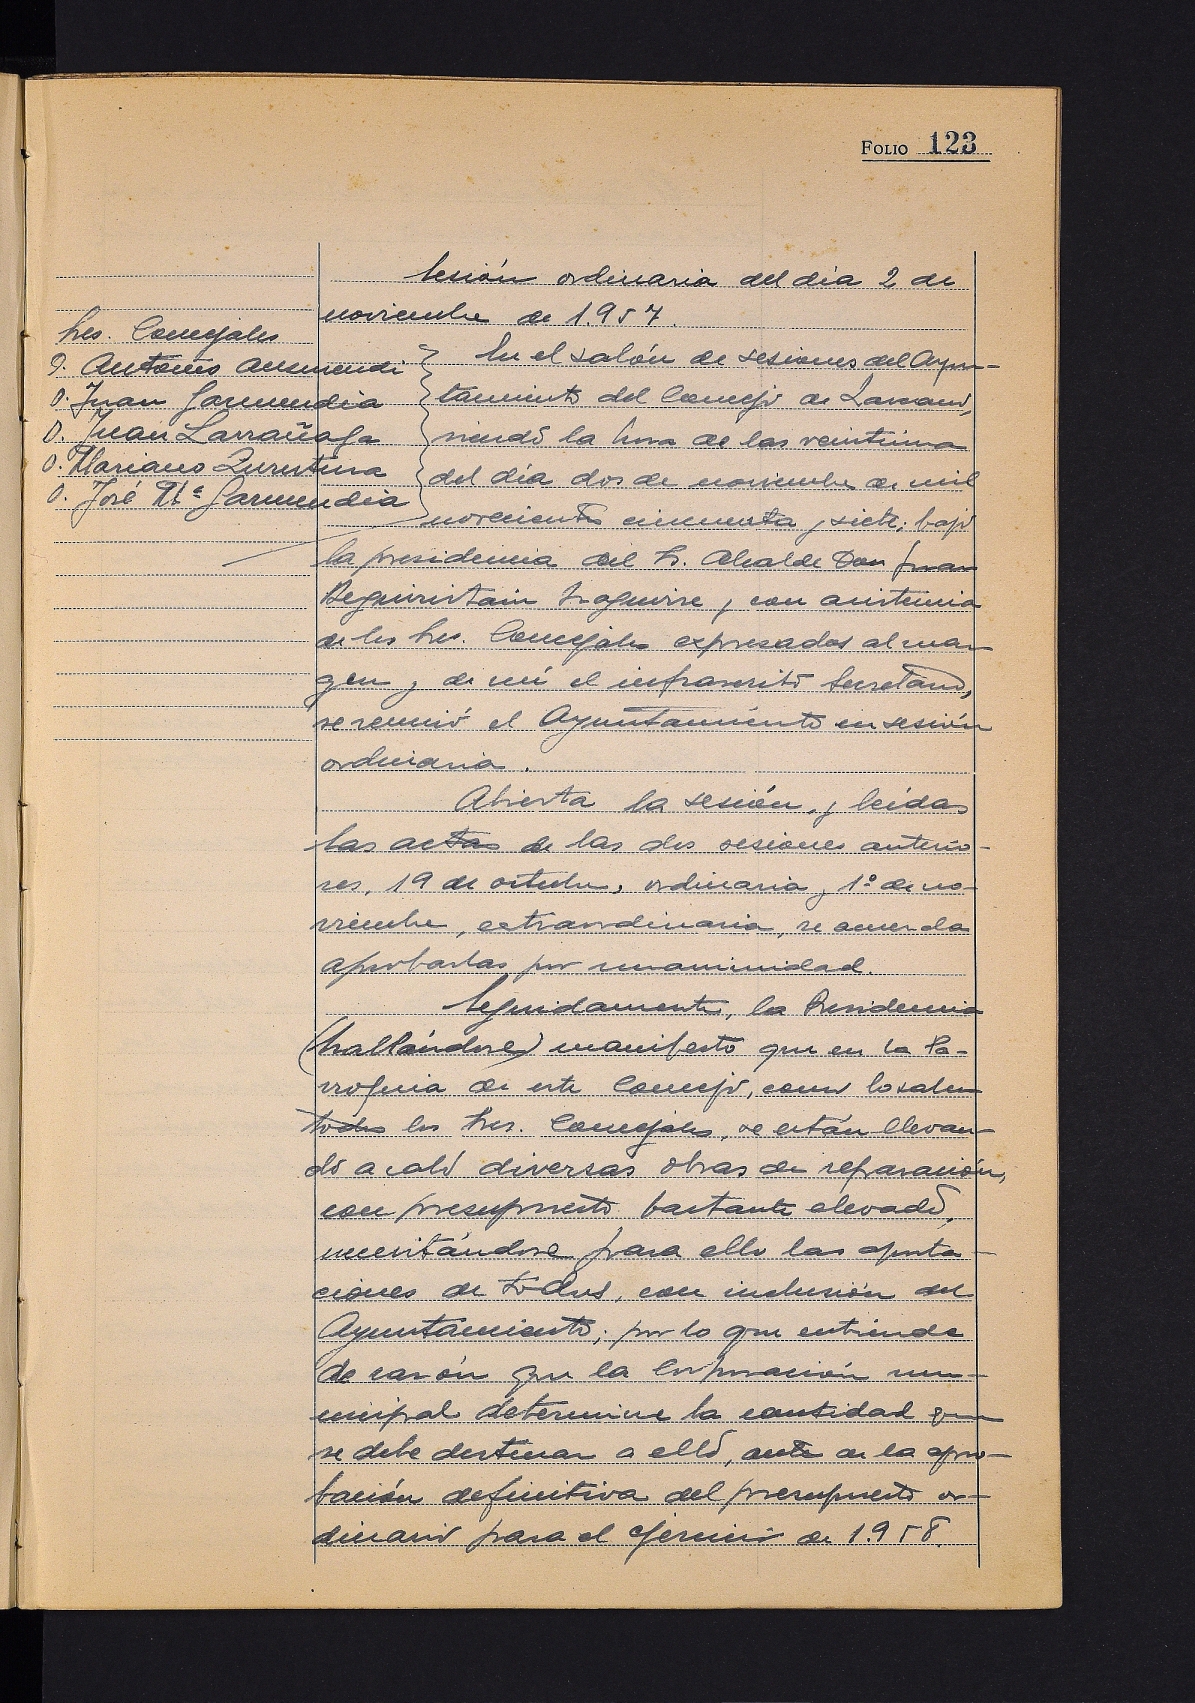 FOLIO 123
Sesión ordinaria del día 2 de
noviembre de 1.957.
Sres. Concejales
D. Antonio Aseguinolaza
D. Juan Garmendia
D. Juan Larrañaga
D. Mariano Zurutuza
D. José Mª Garmendia
En el salón de sesiones del Ayun-
tamiento del Concejo de Lazcano,
siendo la hora de las veintiuna
del día dos de noviembre de mil
novecientos cincuenta y siete; bajo
la presidencia del Sr. Alcalde Don Juan
Beguiristain Izaguirre y con asistencia
de los Sres. Concejales expresados al mar
gen y de mí el infrascrito Secretario,
se reunió el Ayuntamiento en sesión
ordinaria.
Abierta la sesión, y leídas
las actas de las dos sesiones anterio-
res, 19 de octubre, ordinaria y 1º de no-
viembre, extraordinaria, se acuerda
aprobarlas por unanimidad.
Seguidamente, la Presidencia
(hallándose) manifestó que en la Pa-
rroquia de este Concejo, como lo saben
todos los Sres. Concejales, se están llevan
do a cabo diversas obras de reparación,
con presupuesto bastante elevado,
necesitándose para ello las aporta-
ciones de todos, con inclusión del
Ayuntamiento; por lo que entiende
de razón que la Corporación mu-
nicipal determine la cantidad que
se debe destinar a ello, ante de la apro-
bación definitiva del presupuesto or-
dinario para el ejercicio de 1.958.